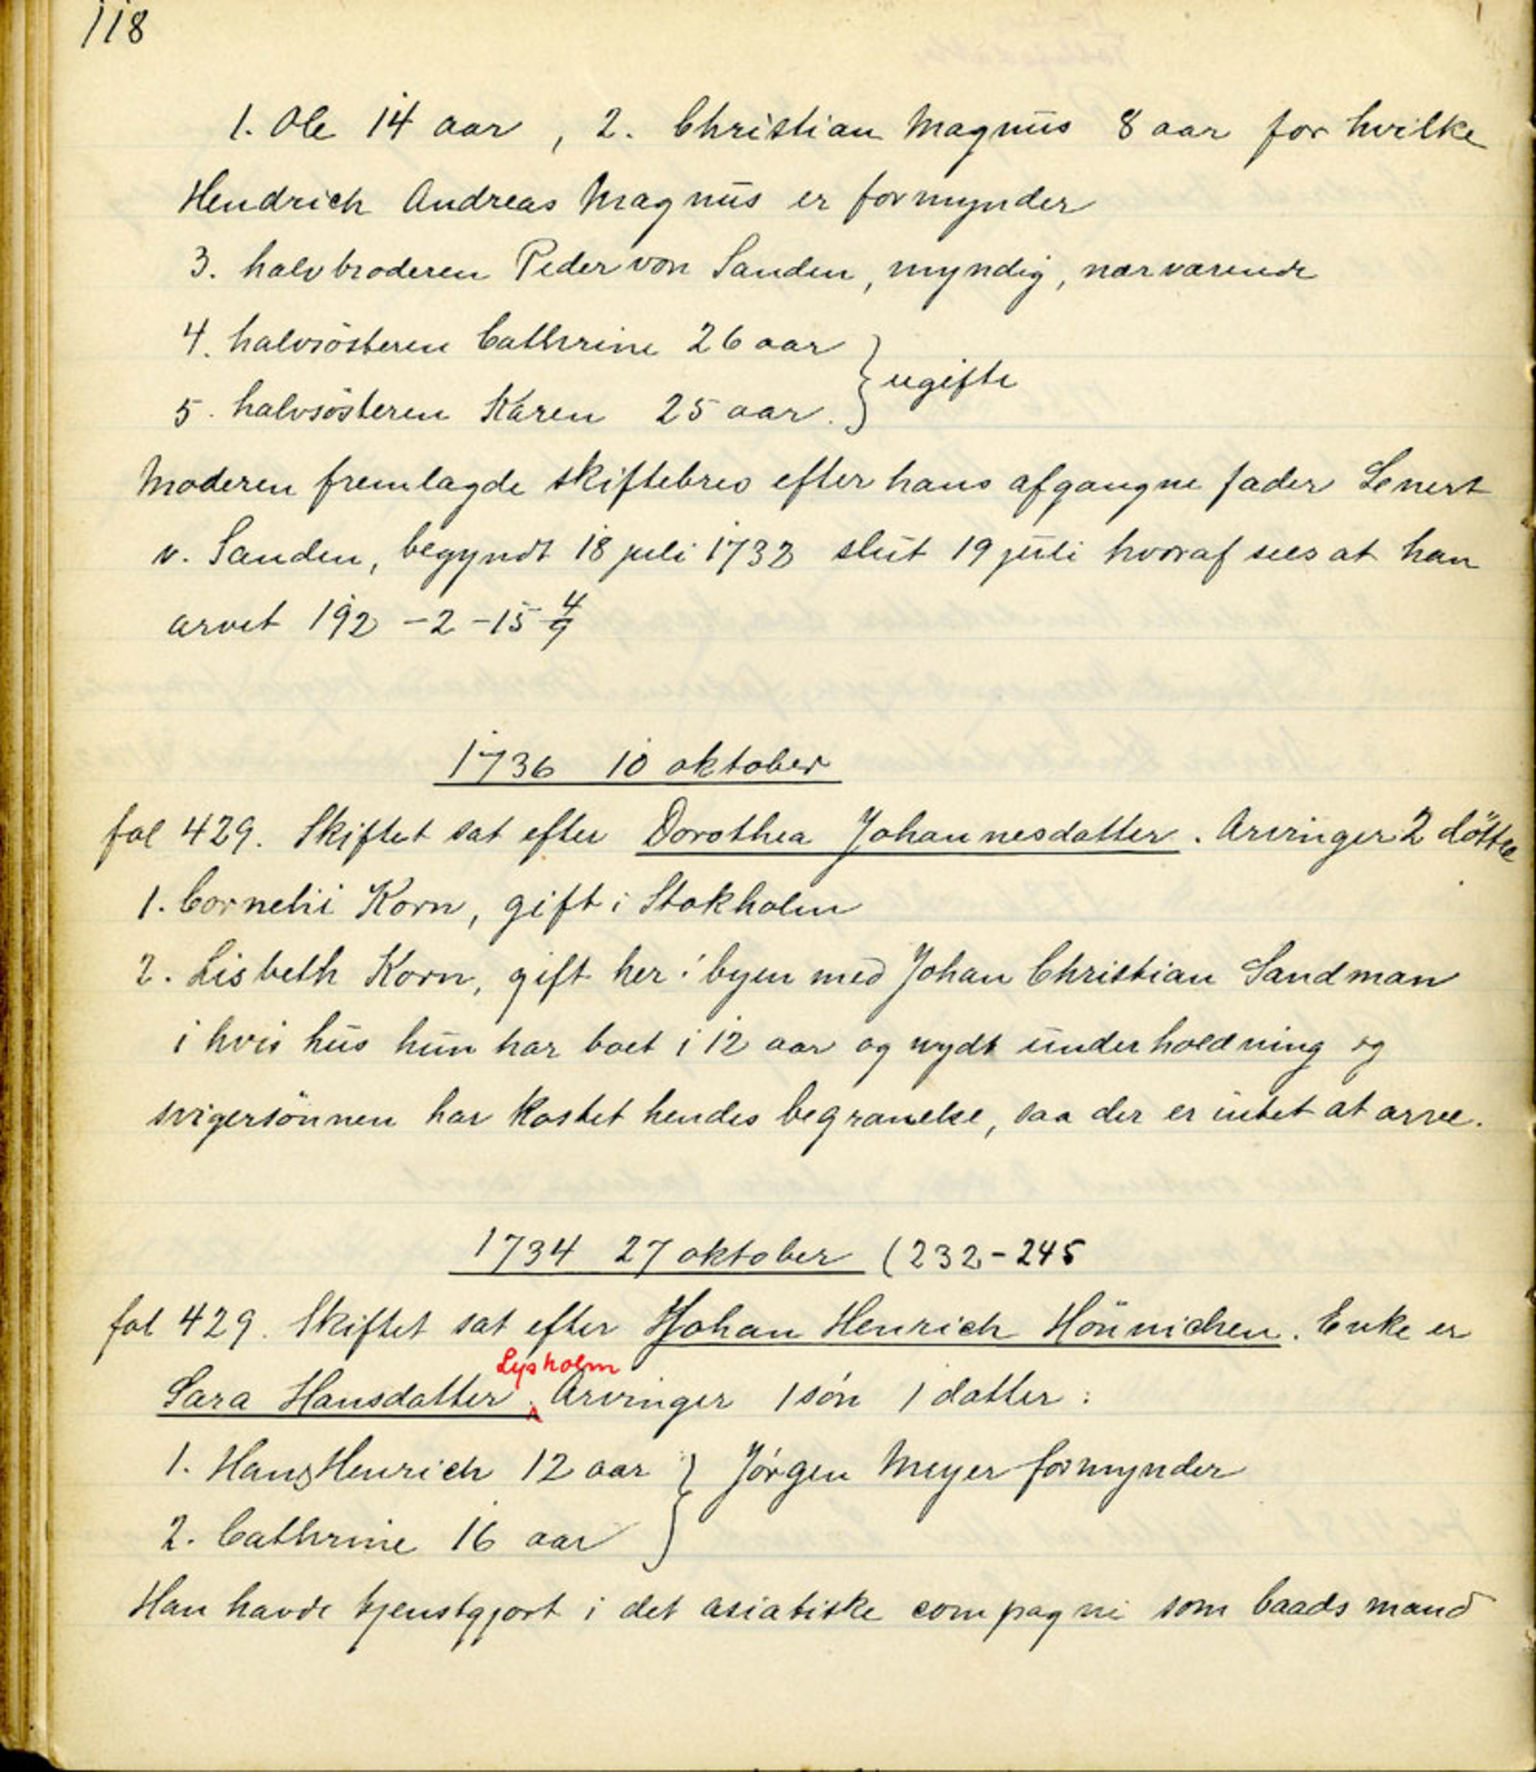 118
1. Ole 14 aar, 2. Christian Magnus 8 aar for hvilke
Hendrich Andreas Magnus er formynder
3. halvbroderen Peder von Sanden, myndig, nærværende
4. halvsösteren Cathrine 26 aar } ugifte
5. halvsösteren Karen 25 aar. }
Moderen fremlagde skiftebrev efter hans afgangne fader Lenert
v. Sanden, begyndt 18 juli 1732 slut 19 juli hvoraf sees at han
arvet 192 - 2 - 15 4/9
1736 10 oktober
fol 429. Skiftet sat efter Dorothea Johannesdatter. Arvinger 2 döttre
1. Cornelii Korn, gift i Stokholm
2. Lisbeth Korn, gift her i byen med Johan Christian Sandman
i hvis hus hun har boet i 12 aar og nydt underholdning og
svigersönnen har kostet hendes begravelse, saa der er intet at arve.
1734 27 oktober (232-245
fol 429. Skiftet sat efter Johan Henrich Hönnichen. Enke er
Lysholm
Sara Hansdatter. Arvinger 1 sön 1 datter:
1. Hans Henrich 12 aar } Jörgen Meyer formynder
2. Cathrine 16 aar }
Han havde tjenstgjort i det asiatiske compagni som baadsmand